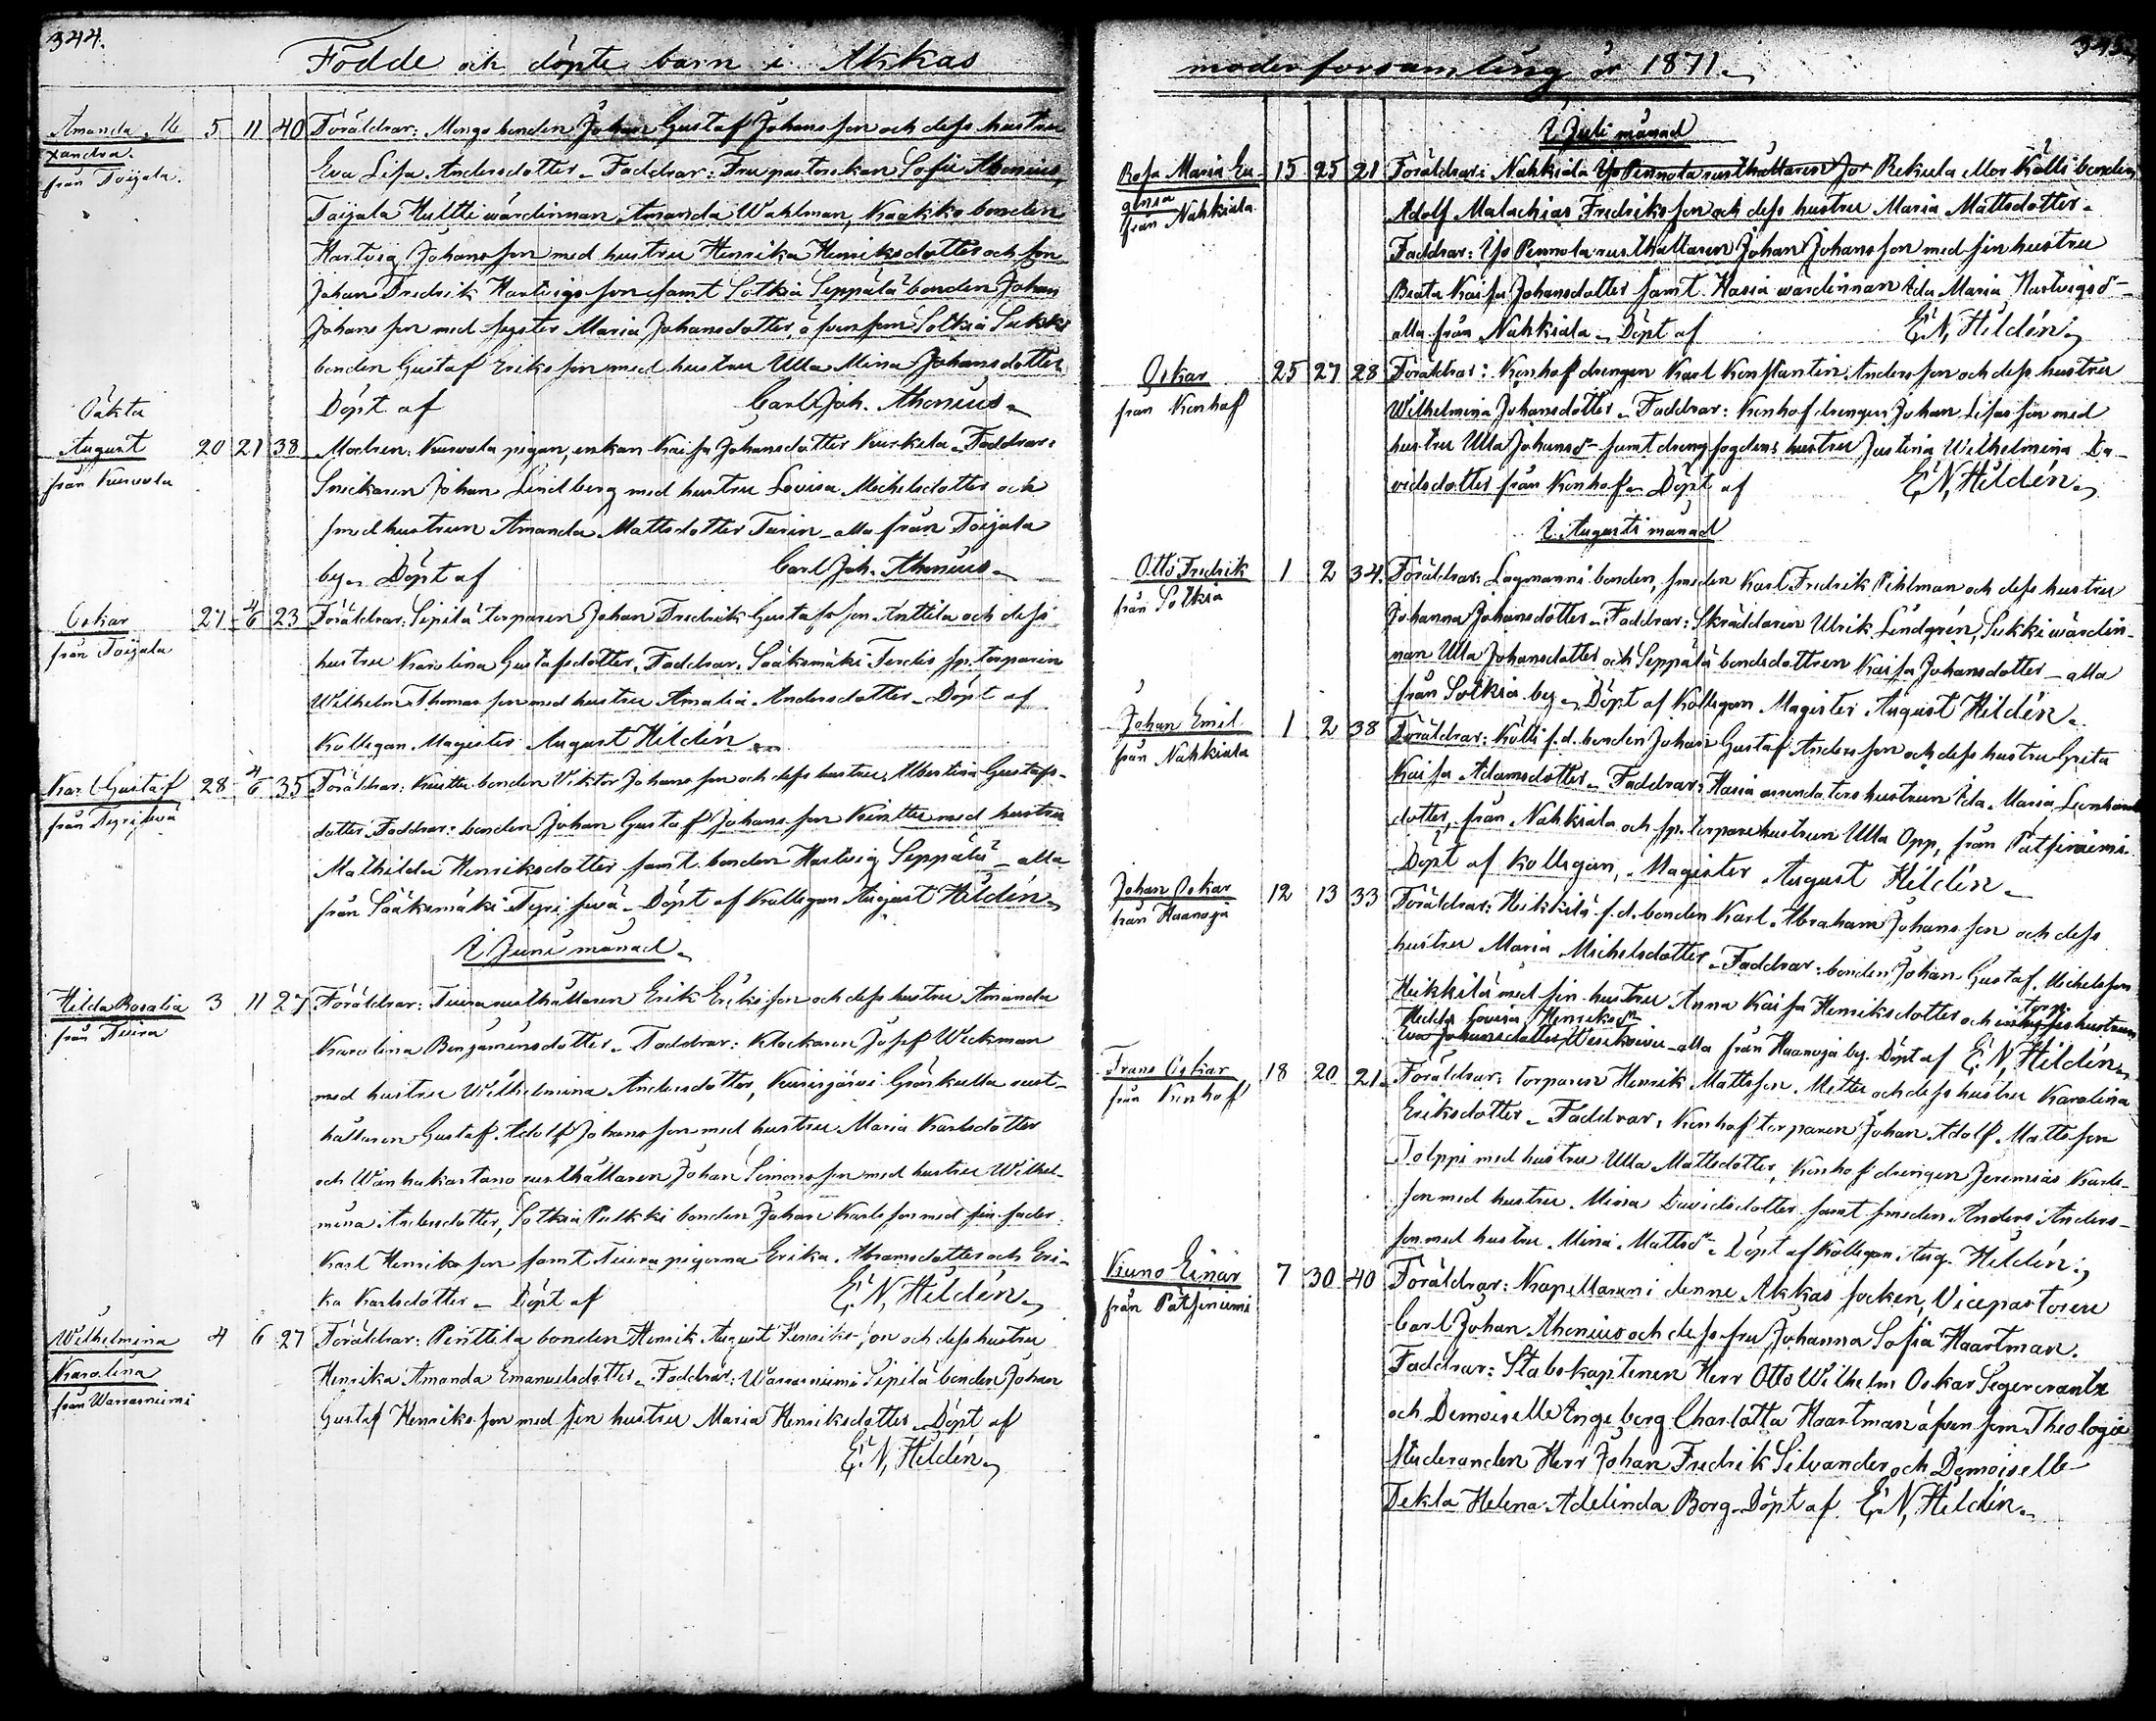 344.
Födde och döpte barn i Akkas
Amanda Ale
xandra.
från Toijala.
5 11 40 Föräldrar: Mongo bonden Johan Gustaf Johansson och dess hustru
Eva Lisa Andersdotter. Faddrar: Fru pastorskan Sofia Thenius,
Toijala Hultti wärdinnan Amanda Wahlman, Kaakko bonden
Hartvig Johansson med hustru Henrika Henriksdotter och son
Johan Fredrik Hartvigsson samt Sotkia Seppälä bonden Johan
Johansson med syster Maria Johansdotter, äfvensom Sotkia Sukki
bonden Gustaf Eriksson med hustru Ulla Mina Johansdotter
Döpt af Carl Joh. Athenius.
Oäkta
August
från Kurvola
20 21 38 Modren: Kurvola pigan, enkan Kaisa Johansdotter Kurkela. Faddrar:
Snickaren Johan Lindberg med hustru Lovisa Michelsdotter och
smedhustrun Amanda Mattsdotter Turin alla från Toijala
by. Döpt af Carl Joh. Athenius.
Oskar
från Toijala
27 4/6 23 Föräldrar: Sipilä torparen Johan Fredrik Gustafsson Anttila och dess
hustru Karolina Gustafsdotter. Faddrar: Sääksmäki Ferdis sp. torparen
Wilhelm Thomasson med hustru Amalia Andersdotter. Döpt af
Kollegan Magister August Hildén.
Karl Gustaf
från Tyrisevä
28 4/6 35 Föräldrar: Kinttu bonden Viktor Johansson och dess hustru Albertina Gustafs-
dotter. Faddrar: bonden Johan Gustaf Johansson Kinttu med hustru
Mathilda Henriksdotter samt bonden Hartvig Seppälä – alla
från Sääksmäki Tyrisevä. Döpt af Kollegan August Hildén.
I Juni månad.
Hilda Rosalia
från Tuira
3 11 27 Föräldrar: Tuira rusthållaren Erik Eriksson och dess hustru Amanda
Karolina Benjaminsdotter. Faddrar: Klockaren Josef Weckman
med hustru Wilhelmina Andersdotter, Kurisjärvi Grönkulla rust-
hållaren Gustaf Adolf Johansson med hustru Maria Karlsdotter
och Wanhakartano rusthållaren Johan Simonsson med hustru Wilhel-
mina Andersdotter, Sotkia Pulkki bonden Johan Karlsson med sin fader
Karl Henriksson samt Tuira pigorna Erika Abramsdotter och Eri-
ka Karlsdotter. Döpt af E. N. Hildén.
Wilhelmina
Karolina
från Warrasniemi
4 6 27 Föräldrar: Penttila bonden Henrik August Henriksson och dess hustru
Henrika Amanda Emanuelsdotter. Faddrar: Warrasniemi Sipilä bonden Johan
Gustaf Henriksson med sin hustru Maria Henriksdotter. Döpt af
E. N. Hildén.
345.
moderförsamling år 1871.
I Juli månad
Rosa Maria Eu-
genia
från Nahkiala
15 25 21 Föräldrar: Nahkiala Yso Pennola rusthållaren Jo Rekula eller Kölli bonden
Adolf Malachias Fredriksson och dess hustru Maria Mattsdotter.
Faddrar: Yso Pennola rusthållaren Johan Johansson med sin hustru
Beata Kaisa Johansdotter samt Hasia wärdinnan Ida Maria Hartvigsdr
alla från Nahkiala. Döpt af E. N. Hildén.
Oskar
från Konhof
25 27 28 Föräldrar: Konhof drengen Karl Konstantin Andersson och dess hustru
Wilhelmina Johansdotter. Faddrar: Konhof drengen Johan Lisasson med
hustru Ulla Johansdr samt drengfogdens hustru Justina Wilhelmina Da-
vidsdotter från Konhof. Döpt af E. N. Hildén.
I Augusti månad
Otto Fredrik
från Sotkia
1 2 34. Föräldrar: Lagmanni bonden, smeden Karl Fredrik Pihlman och dess hustru
Johanna Johansdotter. Faddrar: Skräddaren Ulrik Lindgrén, Sukki wärdin-
nan Ulla Johansdotter och Seppälä bondsdottren Kaisa Johansdotter – alla
från Sotkia by. Döpt af Kollegan Magister August Hildén.
Johan Emil
från Nahkiala
1 2 38 Föräldrar: Kölli f.d. bonden Johan Gustaf Andersson och dess hustru Greta
Kaisa Adamsdotter. Faddrar: Hasia arrendators hustrun Ida Maria Leonhards
dotter, från Nahkiala och sp. torparehustrun Ulla Opp, från Pätsiniemi.
Döpt af kollegan, Magister August Hildén.
Johan Oskar
från Haanoja
12 13 33 Föräldrar: Heikkilä f.d. bonden Karl Abraham Johansson och dess
hustru Maria Michelsdotter. Faddrar: bonden Johan Gustaf Michelsson
Heikkilä med sin hustru Anna Kaisa Henriksdotter och inhyses torp. hustrun
Hedda Lovisa Henriksdr
Eva Johansdotter, Wesikoivu – alla från Haanoja by. Döpt af E. N. Hildén.
Frans Oskar
från Konhof
18 20 21. Föräldrar: torparen Henrik Mattsson Mettu och dess hustru Karolina
Eriksdotter. Faddrar: Konhof torparen Johan Adolf Mattsson
Tolppi med hustru Ulla Mattsdotter, Konhof drengen Jeremias Karls-
son med hustru Mina Davidsdotter samt smeden Anders Anders-
son med hustru Mina Mattsdr. Döpt af Kollegan Aug. Hildén.
Kuno Einar
från Pätsiniemi
7 30 40 Föräldrar: Kapellanen i denne Akkas socken, Vicepastoren
Carl Johan Athenius och dess fru Johanna Sofia Haartman.
Faddrar: Stabskaptenen Herr Otto Wilhelm Oskar Segercrantz
och Demoiselle Engeborg Charlotta Haartman äfvensom Theologie
Studeranden Herr Johan Fredrik Silvander och Demoiselle
Tekla Helena Adelinda Borg. Döpt af E. N. Hildén.